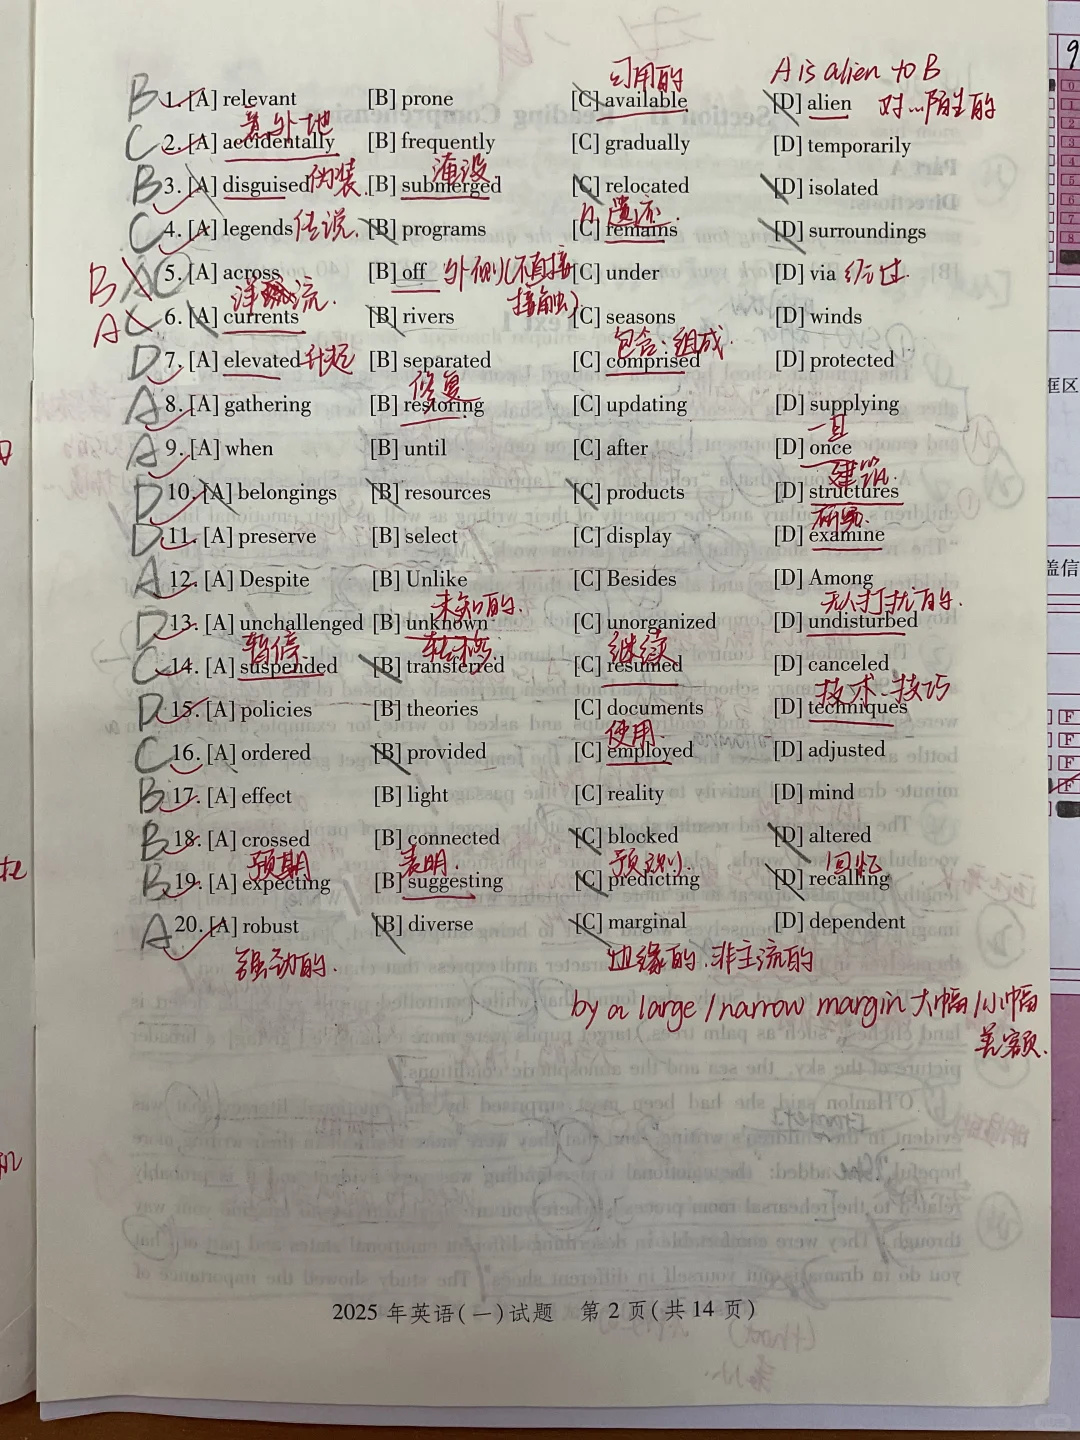 司用的 A is alien to B
B 1. [A] relevant [B] prone [C] available [D] alien 对...陌生的
意外地
C 2. [A] accidentally [B] frequently [C] gradually [D] temporarily
淹没
B 3. [A] disguised 伪装. [B] submerged [C] relocated [D] isolated
n. 遗迹.
C 4. [A] legends 传说. [B] programs [C] remains [D] surroundings
B C 5. [A] across [B] off 外侧(不直接接触) [C] under [D] via 经过.
洋流.
A C 6. [A] currents [B] rivers [C] seasons [D] winds
包含.组成.
D 7. [A] elevated 升起 [B] separated [C] comprised [D] protected
修复
A 8. [A] gathering [B] restoring [C] updating [D] supplying
一旦
A 9. [A] when [B] until [C] after [D] once
建筑
D 10. [A] belongings [B] resources [C] products [D] structures
研究.
D 11. [A] preserve [B] select [C] display [D] examine
A 12. [A] Despite [B] Unlike [C] Besides [D] Among
未知的. 无人打扰的.
D 13. [A] unchallenged [B] unknown [C] unorganized [D] undisturbed
暂停 转移 继续
C 14. [A] suspended [B] transferred [C] resumed [D] canceled
技术.技巧
D 15. [A] policies [B] theories [C] documents [D] techniques
使用.
C 16. [A] ordered [B] provided [C] employed [D] adjusted
B 17. [A] effect [B] light [C] reality [D] mind
B 18. [A] crossed [B] connected [C] blocked [D] altered
预期 表明. 预测. 回忆
B 19. [A] expecting [B] suggesting [C] predicting [D] recalling
A 20. [A] robust [B] diverse [C] marginal [D] dependent
强劲的. 边缘的.非主流的
by a large/narrow margin 大幅/小幅
差额.
2025 年英语(一)试题 第 2 页(共 14 页)